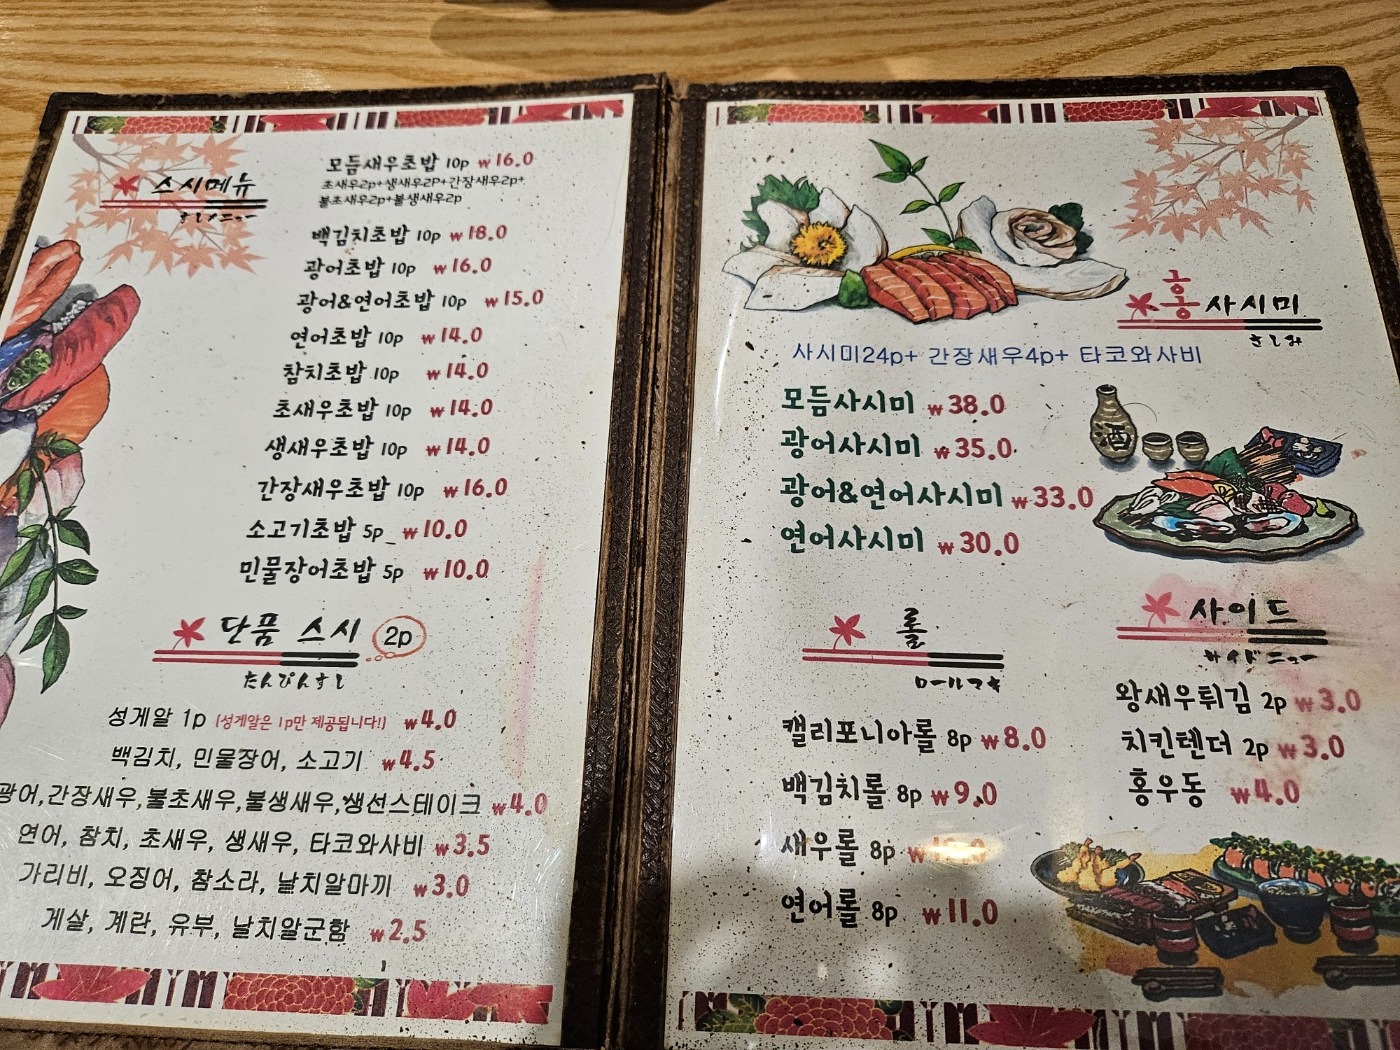 스시메뉴
すしメニュー
모듬새우초밥 10p ₩16.0
초새우2p+생새우2P+간장새우2p+
불초새우2p+불생새우2p
백김치초밥 10p ₩18.0
광어초밥 10p ₩16.0
광어&연어초밥 10p ₩15.0
연어초밥 10p ₩14.0
참치초밥 10p ₩14.0
초새우초밥 10p ₩14.0
생새우초밥 10p ₩14.0
간장새우초밥 10p ₩16.0
소고기초밥 5p ₩10.0
민물장어초밥 5p ₩10.0
단품 스시 2p
たんぴんすし
성게알 1p (성게알은 1p만 제공됩니다!) ₩4.0
백김치, 민물장어, 소고기 ₩4.5
광어,간장새우,불초새우,불생새우,생선스테이크 ₩4.0
연어, 참치, 초새우, 생새우, 타코와사비 ₩3.5
가리비, 오징어, 참소라, 날치알마끼 ₩3.0
게살, 계란, 유부, 날치알군함 ₩2.5
홍사시미
さしみ
사시미24p+ 간장새우4p+ 타코와사비
모듬사시미 ₩38.0
광어사시미 ₩35.0
광어&연어사시미 ₩33.0
연어사시미 ₩30.0
酒
롤
ロールマキ
캘리포니아롤 8p ₩8.0
백김치롤 8p ₩9.0
새우롤 8p
연어롤 8p ₩11.0
사이드
サイドニュー
왕새우튀김 2p ₩3.0
치킨텐더 2p ₩3.0
홍우동 ₩4.0